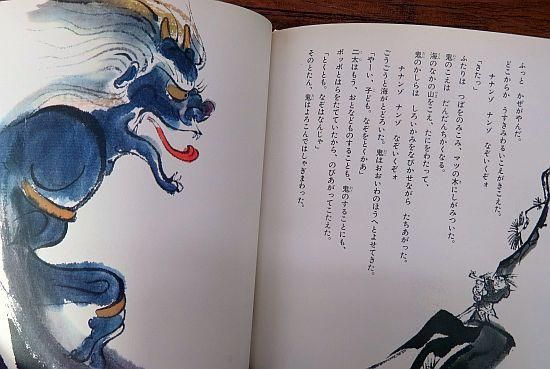 ふっと かぜがやんだ。
どこからか うすきみわるいこえがきこえた。
「きたっ」
ふたりは つばをのみこみ、マツの木にしがみついた。
鬼のこえは だんだんちかくなる。
海のなかの山をこえ、たにをわたって、
ナナンゾ ナンゾ なぞいくぞォ
鬼のかしらは しろいかみをなびかせながら たちあがった。
ナナンゾ ナンゾ なぞいくぞォ
ごうごうと海がとどろいた。鬼はおおいわのほうへとよせてきた。
「やーい、子ども。なぞをとくかあ」
二太はもう、おとなどものすることも、鬼のすることにも、
ポッポとはらをたてていたから、のびあがってこたえた。
「とくとも。なぞはなんじゃ」
そのとたん、鬼はよろこんではしゃぎまわった。